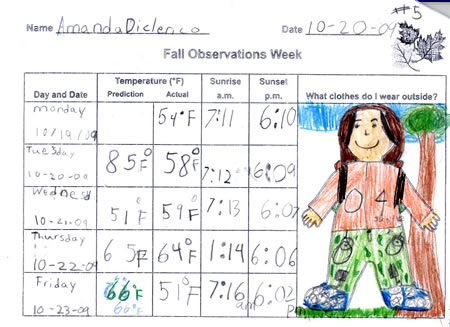 #5
Name Amanda Diclerico Date 10-20-09
Fall Observations Week
Temperature (°F) Sunrise Sunset
Day and Date Prediction Actual a.m. p.m. What clothes do I wear outside?
monday 54°F 7:11 6:10
10/19/09
Tuesday 85°F 58°F 7:12 6:09
10-20-09
Wednesd 51°F 59°F 7:13
10-21-09
Thursday 65F 64°F 1:14 6:06
10-22-09
Friday 66°F 51°F 7:16 am 6:02 pm
10-23-09
04